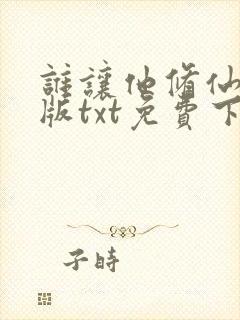 誰讓他脩仙
版txt免費下
子時